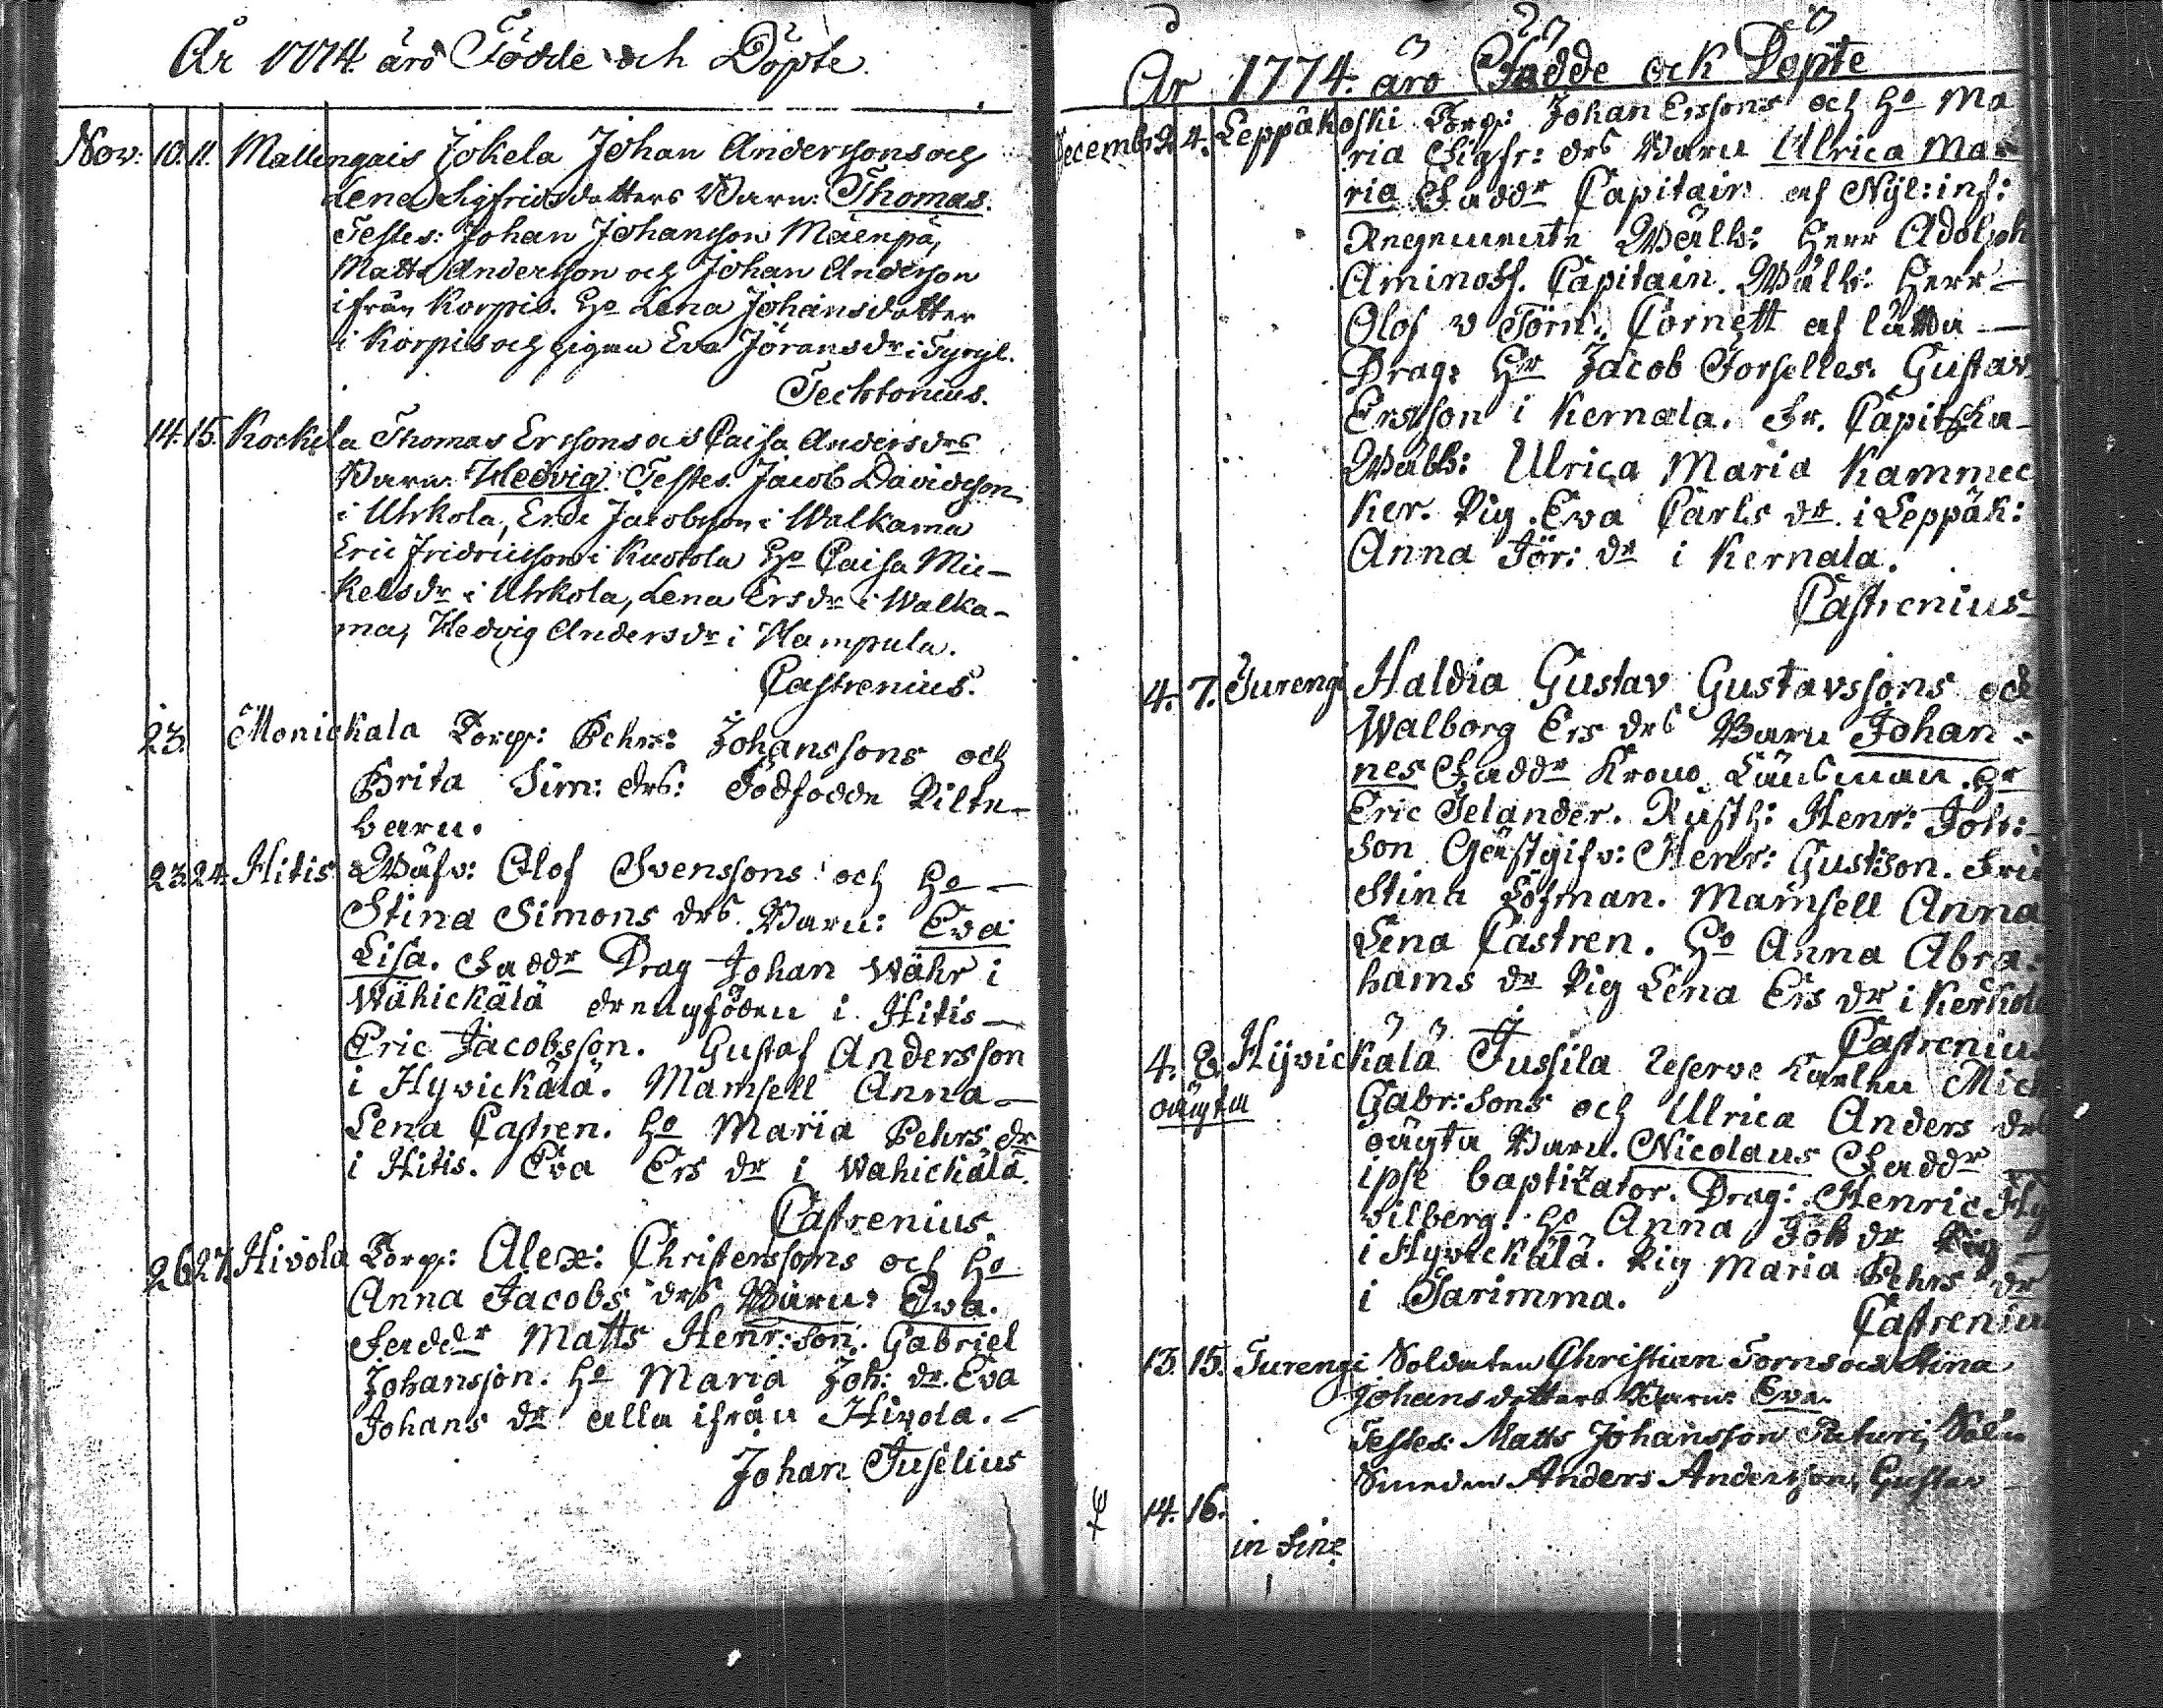 År 1774. äro Födde och Döpte.
Nov: 10. 11. Mallingais Jokela Johan Anderssons och
Lena Sigfridsdotters Barn: Thomas.
Testes: Johan Johansson Mäenpä,
Matts Andersson och Johan Andersson
ifrån Korpis. Ho Lena Johansdotter
i Korpis och pigan Eva Jöransdr i
Techtonius.
14. 15. Kockila Thomas Erssons och Caisa Andersdrs
Barn: Hedvig. Testes Jacob Davidsson
i Uhkola, Eric Jacobsson i Walkama
Eric Fridricsson i Ho Caisa Mic-
kelsdr i Uhkola, Lena Ersdr i Walka-
ma, Hedvig Andersdr i Hampula.
Castrenius.
23. Monickala Torp: Pehr: Johanssons och
Brita Sim: drs: dödfödde Pilte-
barn.
23. 24. Hitis Wäfv: Olof Svenssons och Ho
Stina Simons drs Barn: Eva
Lisa. Faddr Drag Johan Währ i
Wähickälä drengjöden i Hitis
Eric Jacobsson. Gustaf Andersson
i Hyvickälä. Mamsell Anna
Lena Castren. Ho Maria Pehrs dr
i Hitis. Eva Ers dr i Wahickälä.
Castrenius
26. 27. Hivola Torp: Alex: Christerssons och Ho
Anna Jacobs drs Barn: Eva.
Faddr Matts Henr:son. Gabriel
Johansson. Ho Maria Joh: dr. Eva
Johans dr alla ifrån Hivola.
Johan Tuselius
År 1774. äro Födde och Döpte
Decemb: 2. 4. Leppäkoski Torp: Johan Erssons och Ho Ma
ria Sigfr: drs Barn Ulrica Ma-
ria Faddr Capitain af Nyl: inf:
Regemente Wälb: Herr Adolph
Aminoff. Capitain. Wälb: Herr
Olof v Törn. Cornett af lätta
Drag: Hr Jacob Forselles. Gustav
Ersson i Kernala. Fr. Capitska
Wälb: Ulrica Maria Kammec
ker. Pig. Eva Carls dr. i Leppäk:
Anna Jör: dr i Kernala.
Castrenius
4. 7. Turengi Haldia Gustav Gustavssons och
Walborg Ers drs Barn Johan-
nes Faddr Krono Länsman. Hr
Eric Telander. Rusth: Henr: Joh:
son Gästgifv: Henr: Gustson. Fru
Stina Löfman. Mamsell Anna
Lena Castren. Ho Anna Abra-
hams dr Pig Lena Ers dr i
Castrenius
4. 8. Hyvickälä Jussila reserve Karlen Mich
oägta
Gabr:sons och Ulrica Anders drs
oägta Barn. Nicolaus Faddr
ipse baptizator. Drag: Henric Hy
vilberg. Ho Anna Joh dr
i Hyvickälä. Pig Maria Pehrs dr
i Sarimma.
Castrenius
13. 15. Turengi Soldaten Christian Torns och Stina
Johansdotters Barn: Eva.
Testes: Matts Johansson Paturi,
Smeden Anders Andersson, Gustav
14. 16.
in fine